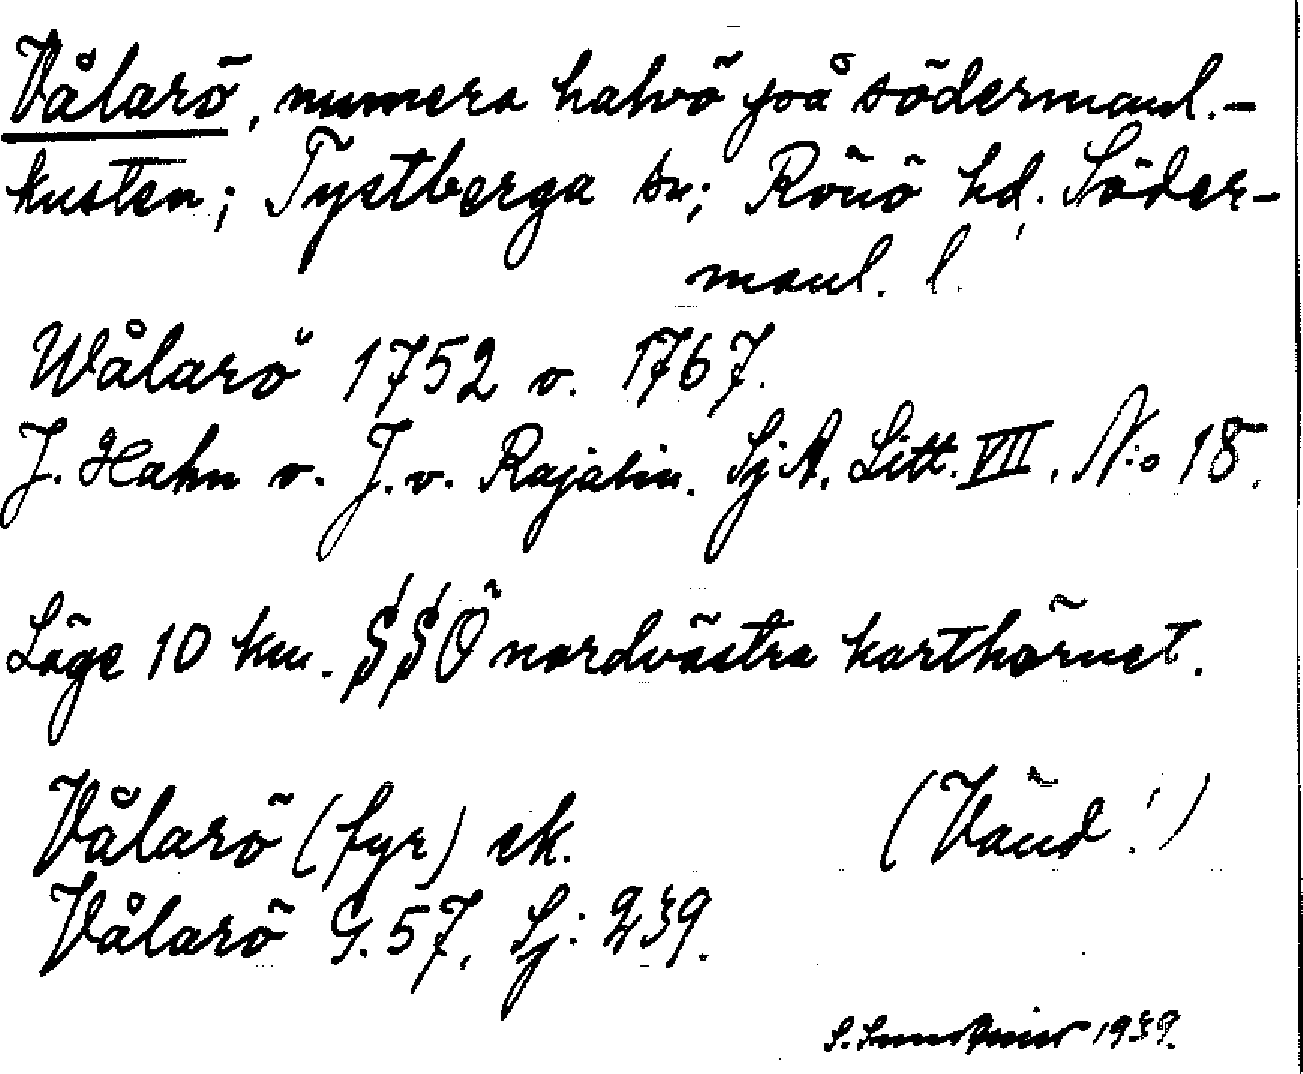 Vålarö, numera halvö på södermanl.-
kusten; Tystberga sn; Rönö hd, Söder-
manl. l.
Wålarö 1752 o. 1767.
J. Hahn o. J. v. Rajalin. SjA. Litt. VII. N:o 18.
Läge 10 km. SSÖ nordvästra karthörnet.
Vålarö (fyr) ek. (Vänd!)
Vålarö G. 57, Sj: 239.
1939.